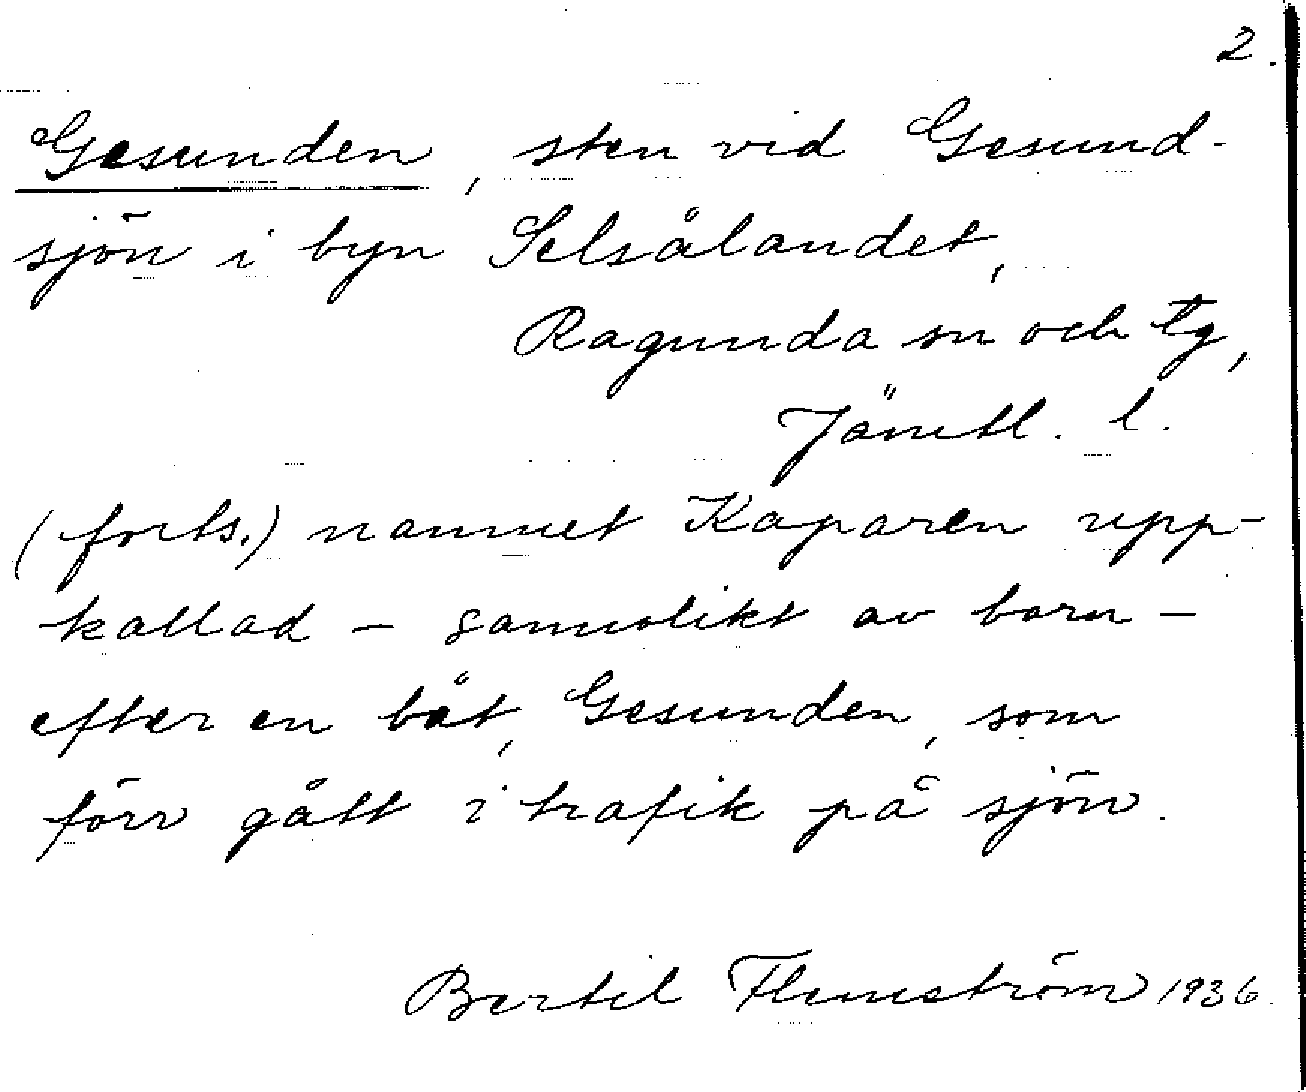 2.
Gesunden, sten vid Gesund-
sjön i byn Selsålandet,
Ragunda sn och tg,
Jämtl. l.
(forts.) namnet Kaparen upp-
kallad - sannolikt av barn -
efter en båt, Gesunden, som
förr gått i trafik på sjön.
Bertil Flemström 1936.